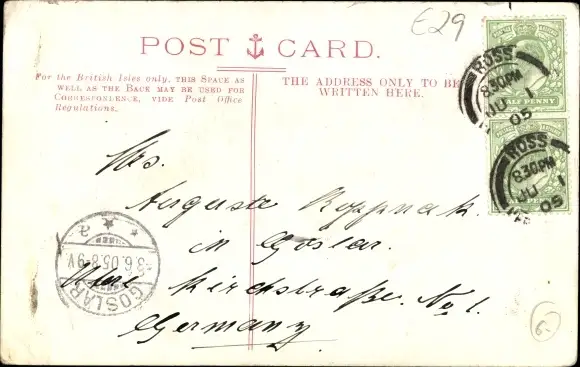 £29
POST CARD.
For the British Isles only, THIS SPACE AS
WELL AS THE BACK MAY BE USED FOR
CORRESPONDENCE, VIDE Post Office
Regulations.
THE ADDRESS ONLY TO BE
WRITTEN HERE.
ROSS
8.30PM
JU 1
05
HALF PENNY
ROSS
8.30PM
JU 1
05
Mrs.
Auguste
in Goslar.
Kirchstraße. No 1.
Germany
GOSLAR
3.6.05.8-9V.
a
6